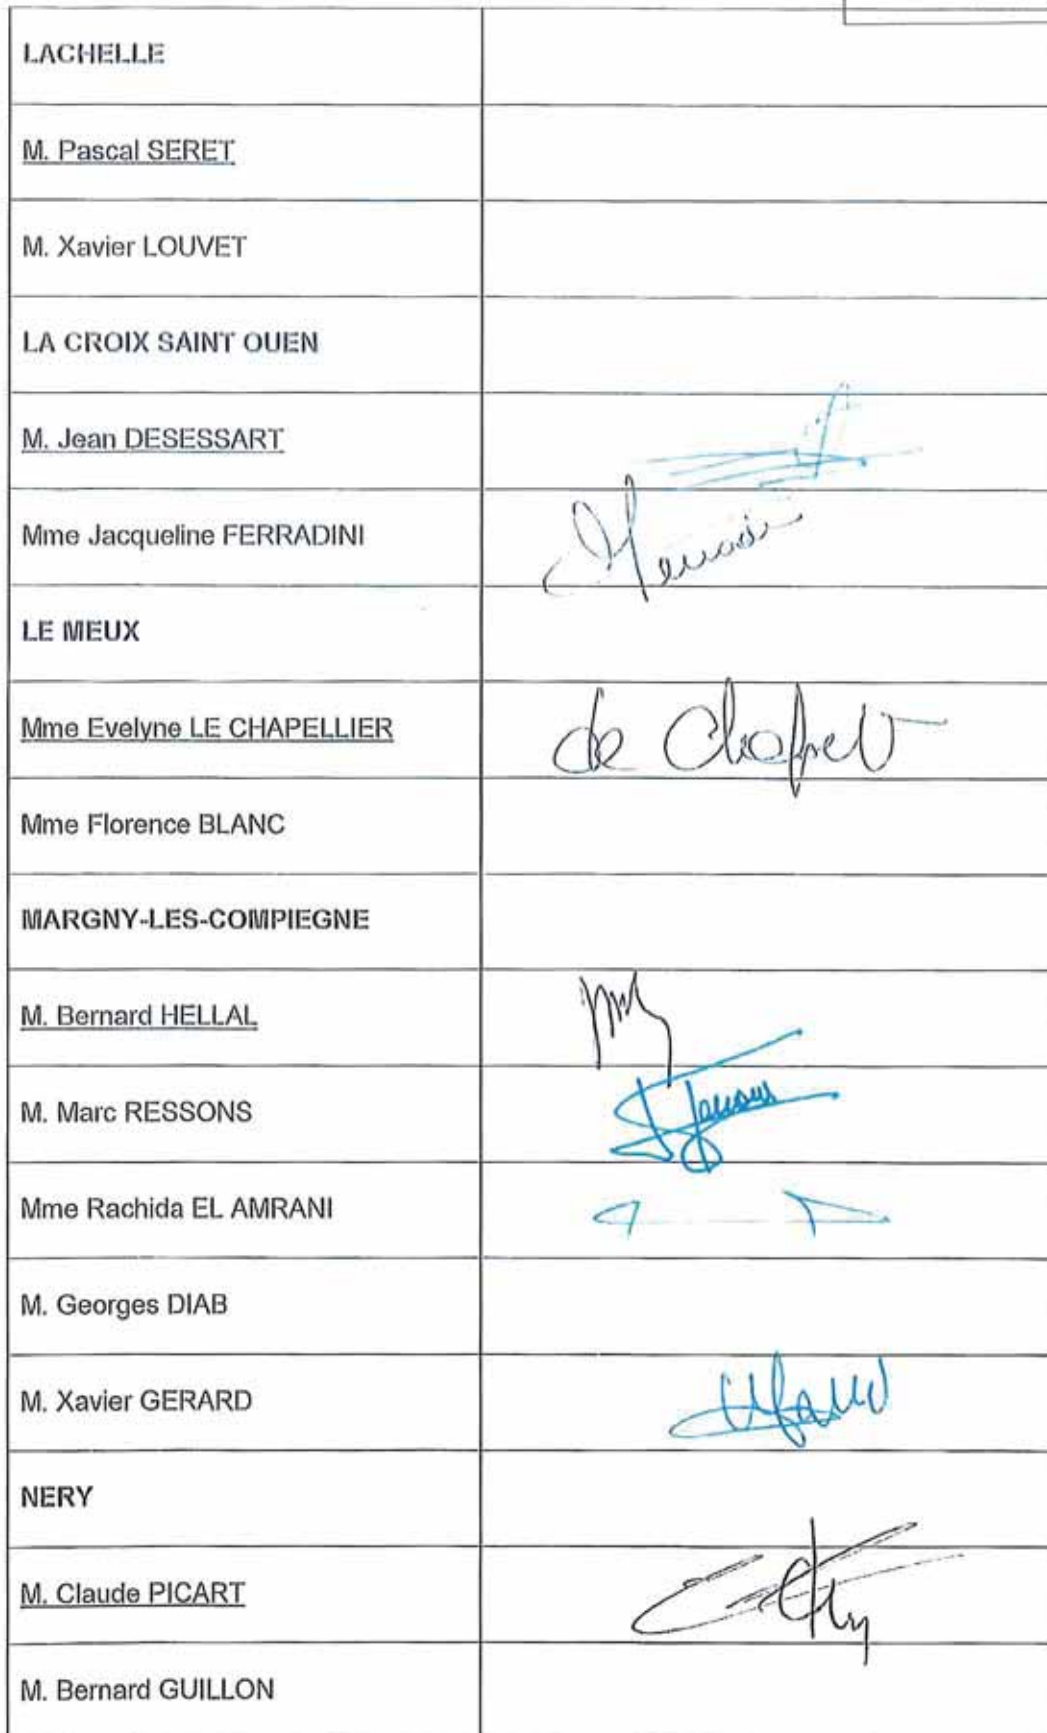 LACHELLE
M. Pascal SERET
M. Xavier LOUVET
LA CROIX SAINT OUEN
M. Jean DESESSART
Mme Jacqueline FERRADINI
LE MEUX
Mme Evelyne LE CHAPELLIER
Mme Florence BLANC
MARGNY-LES-COMPIEGNE
M. Bernard HELLAL
M. Marc RESSONS
Mme Rachida EL AMRANI
M. Georges DIAB
M. Xavier GERARD
NERY
M. Claude PICART
M. Bernard GUILLON